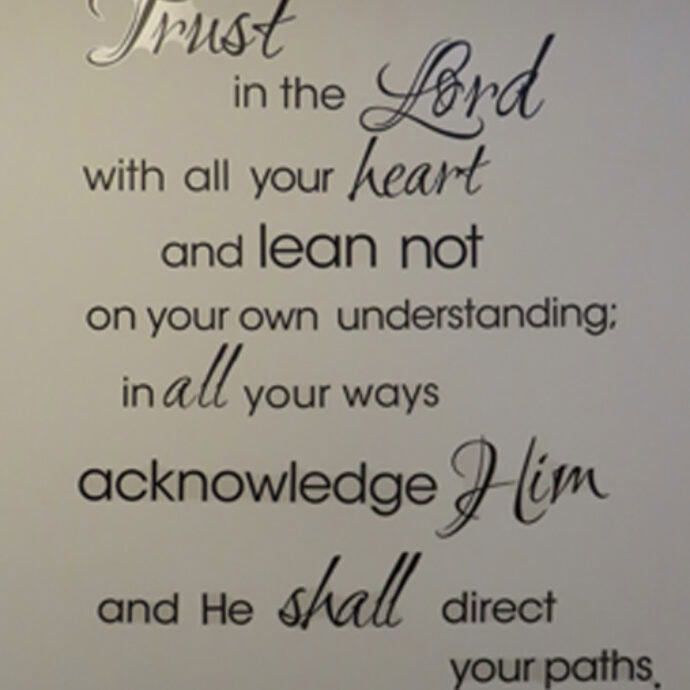 Trust
in the Lord
with all your heart
and lean not
on your own understanding;
in all your ways
acknowledge Him
and He shall direct
your paths.